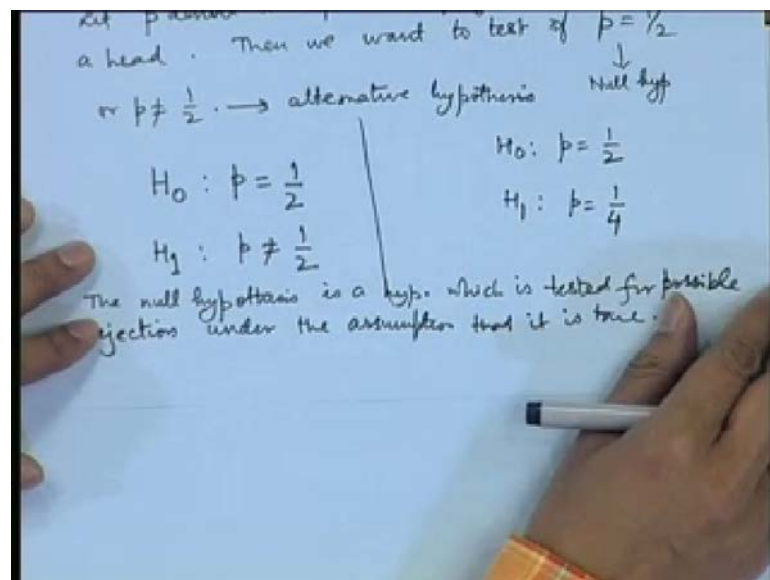 Let p
a head. Then we want to test if p = 1/2
↓
Null hyp
or p ≠ 1/2. → alternative hypothesis
H₀ : p = 1/2
H₁ : p ≠ 1/2
H₀ : p = 1/2
H₁ : p = 1/4
The null hypothesis is a hyp. which is tested for possible
rejection under the assumption that it is true.